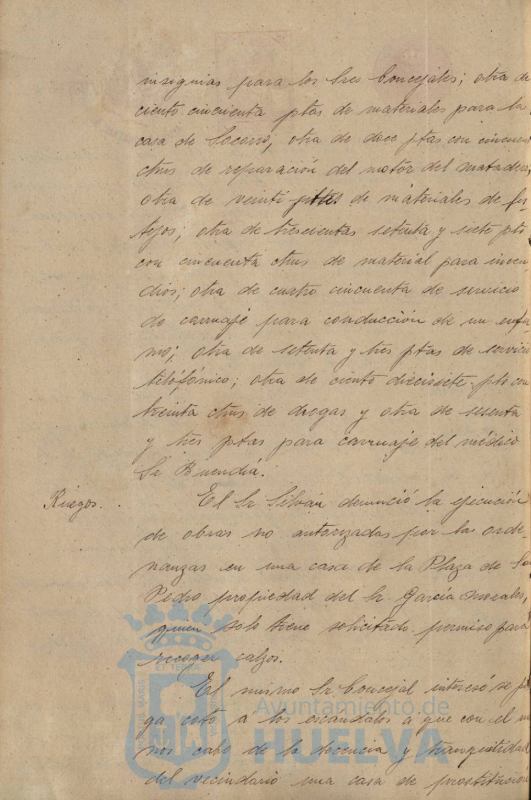 insignias para los tres Concejales; otra de
ciento cincuenta ptas de materiales para la
casa de Socorro, otra de doce ptas con cincuen
ctms de reparación del motor del matadero,
otra de veinti de materiales de fes
tejos; otra de trescientas setenta y siete pts
con cincuenta ctms de material para incen
dios; otra de cuatro cincuenta de servicio
de carruaje para conducción de un enfer
mo; otra de setenta y tres ptas de servicio
telefónico; otra de ciento diecisiete pts con
treinta ctms de drogas y otra de sesenta
y tres ptas para carruaje del médico
Sr Buendía.
Ruegos. El Sr Silván denunció la ejecución
de obras no autorizadas por las orde-
nanzas en una casa de la Plaza de San
Pedro propiedad del Sr García Morales,
quien solo tiene solicitado permiso para
recoger calzos.
El mismo Sr Concejal interesó se pon
ga coto a los escándalos a que con el me
nos cabo de la decencia y tranquilidad
del vecindario una casa de prostitución
Ayuntamiento de
HUELVA